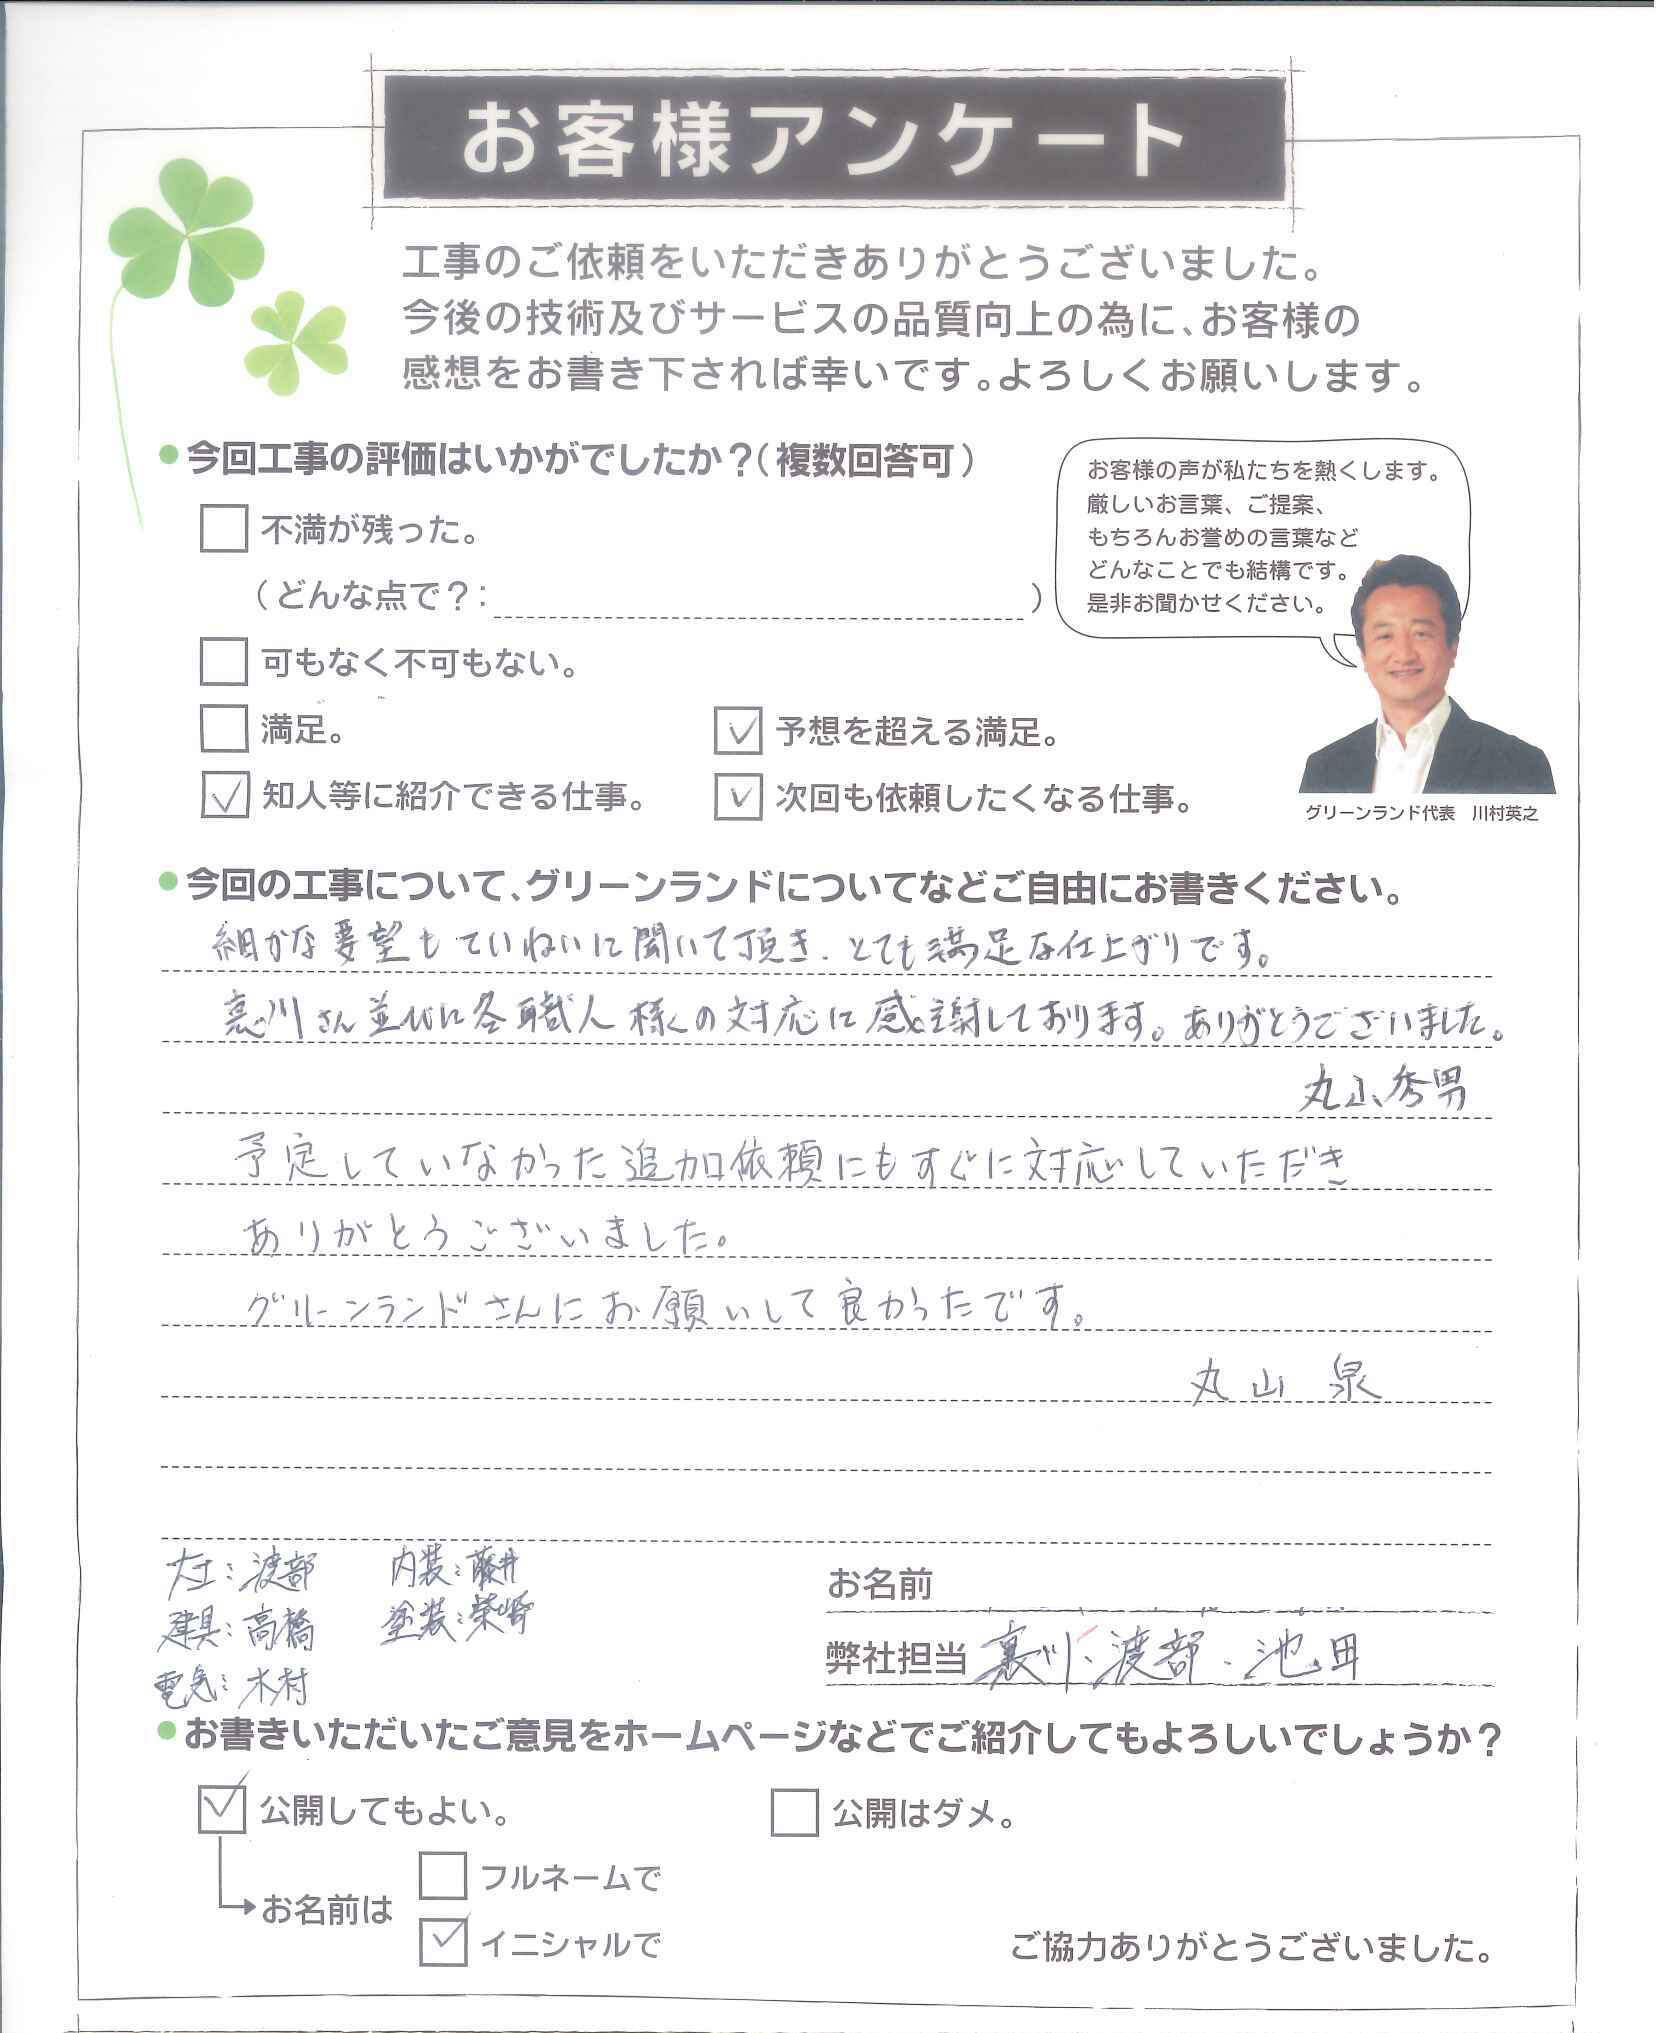 お客様アンケート
工事のご依頼をいただきありがとうございました。
今後の技術及びサービスの品質向上の為に、お客様の
感想をお書き下されば幸いです。よろしくお願いします。
今回工事の評価はいかがでしたか？（複数回答可）
不満が残った。
（どんな点で？： ）
可もなく不可もない。
満足。
予想を超える満足。
知人等に紹介できる仕事。
次回も依頼したくなる仕事。
お客様の声が私たちを熱くします。
厳しいお言葉、ご提案、
もちろんお誉めの言葉など
どんなことでも結構です。
是非お聞かせください。
グリーンランド代表 川村英之
今回の工事について、グリーンランドについてなどご自由にお書きください。
細かな要望もていねいに聞いて頂き、とても満足な仕上がりです。
裏川さん並びに各職人様の対応に感謝しております。ありがとうございました。
丸山秀男
予定していなかった追加依頼にもすぐに対応していただき
ありがとうございました。
グリーンランドさんにお願いして良かったです。
丸山 泉
大工：渡部 内装：藤井
建具：高橋 塗装：柴崎
電気：木村
お名前
弊社担当 裏川・渡部・池田
お書きいただいたご意見をホームページなどでご紹介してもよろしいでしょうか？
公開してもよい。
公開はダメ。
お名前は
フルネームで
イニシャルで
ご協力ありがとうございました。